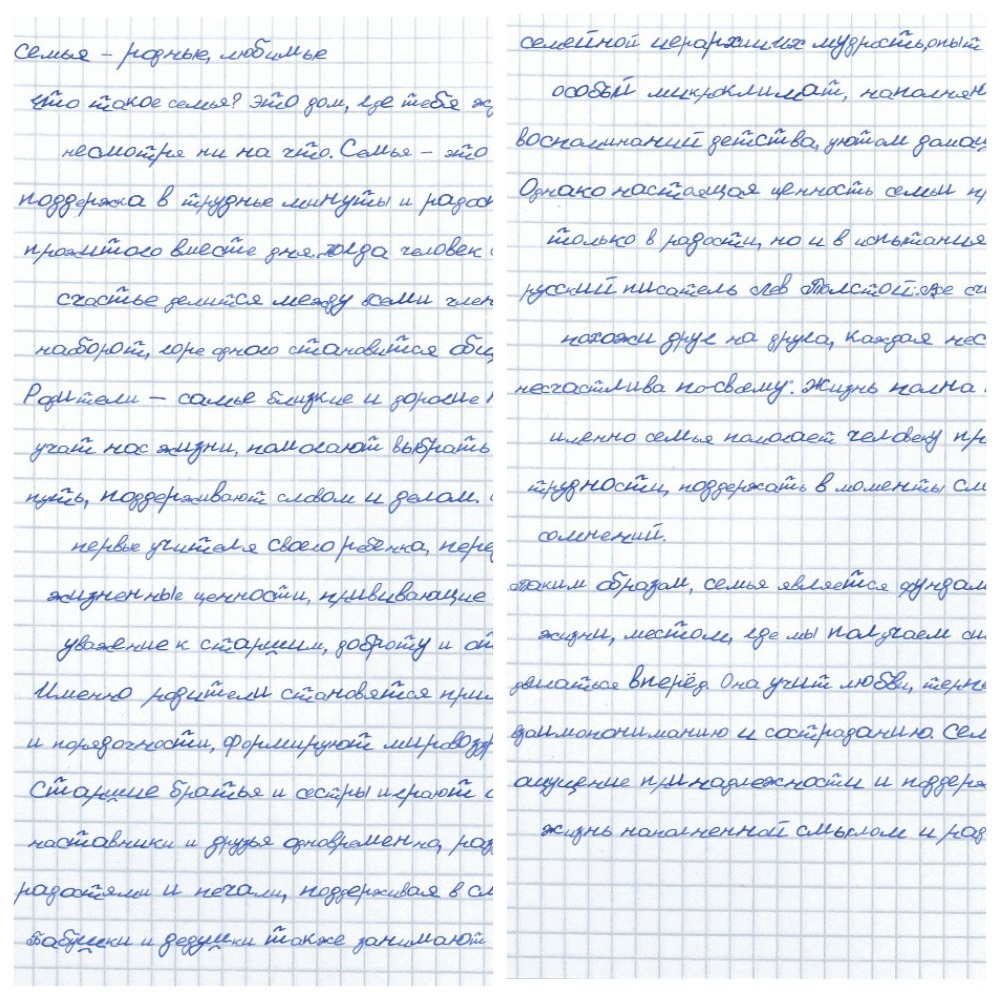 Семья – родные, любимые
Что такое семья? Это дом, где тебя ж
несмотря ни на что. Семья – это
поддержка в трудные минуты и радос
прожитого вместе дня. Когда человек
счастье делится между всеми член
наоборот, горе одного становится общ
Родители — самые близкие и дорогие
учат нас жизни, помогают выбрать
путь, поддерживают словом и делом.
первые учителя своего ребенка, пере
жизненные ценности, прививающие
уважение к старшим, доброту и от
Именно родители становятся прим
и порядочности, формируют мировоззр
Старшие братья и сестры играют
наставники и друзья одновременно, раз
радостями и печали, поддерживая в сл
Бабушки и дедушки также занимают
семейной иерархии их мудрость, опыт
особый микроклимат, наполнен
воспоминаний детства, уютом домаш
Однако настоящая ценность семьи пр
только в радости, но и в испытания
русский писатель Лев Толстой: Все сч
похожи друг на друга, каждая нес
несчастлива по-своему. Жизнь полна
именно семья помогает человеку пр
трудности, поддержать в моменты см
сомнений.
Таким образом, семья является фундам
жизни, местом, где мы получаем си
двигаться вперёд. Она учит любви, терпе
взаимопониманию и состраданию. Сем
ощущение принадлежности и поддерж
жизнь наполненной смыслом и рад